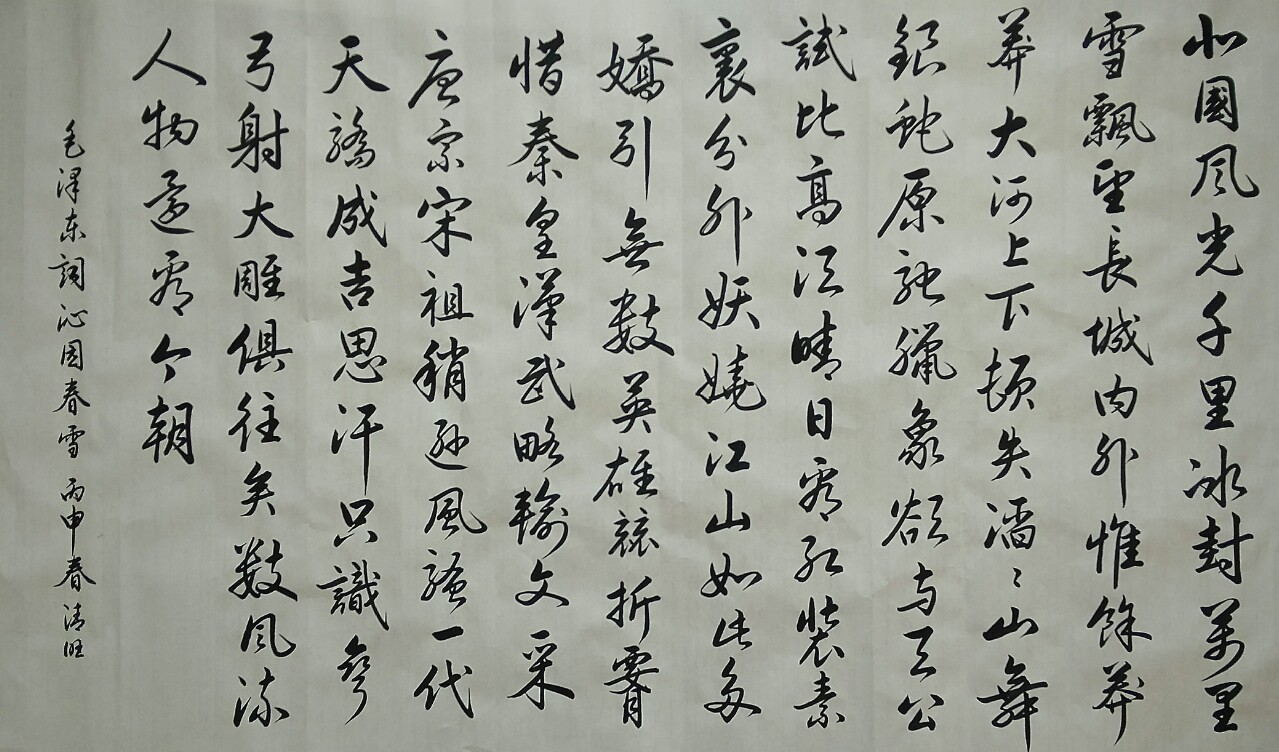 北國风光千里冰封萬里
雪飄望長城内外惟餘莽
莽大河上下頓失滔〻山舞
銀蛇原馳臘象欲与天公
試比高須晴日看红裝素
裹分外妖嬈江山如此多
嬌引無數英雄競折腰
惜秦皇漢武略輸文采
唐宗宋祖稍遜風騷一代
天驕成吉思汗只識彎
弓射大雕俱往矣數风流
人物還看今朝
毛泽东詞沁園春雪 丙申春清旺